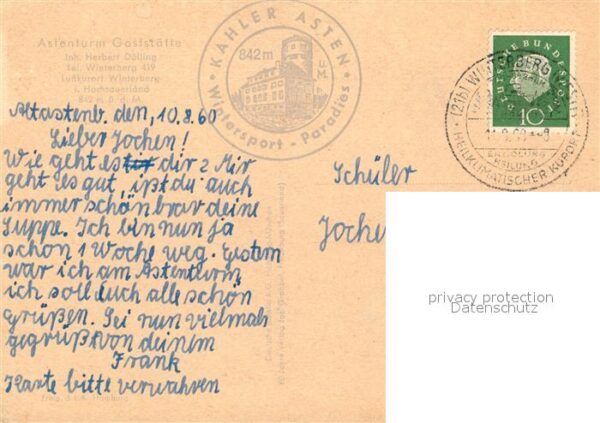 Astenturm Gaststätte
Inh. Herbert Dölling
Tel. Winterberg 419
Luftkurort Winterberg
i. Hochsauerland
842 m ü. d. M.
KAHLER ASTEN
842 m
ü.M.
Wintersport - Paradies
DEUTSCHE BUNDESPOST
10
(21b) WINTERBERG
HEILKLIMATISCHER KURORT
Altastenb. den, 10.8.60
Lieber Jochen!
Wie geht es dir ? Mir
geht es gut, ißt du auch
immer schön brav deine
Suppe. Ich bin nun ja
schon 1 Woche weg. Gestern
war ich am Astenturm
ich soll euch alle schön
grüßen. Sei nun vielmals
gegrüßt von deinem
Frank
Karte bitte verwahren
Schüler
Jochen
privacy protection
Datenschutz